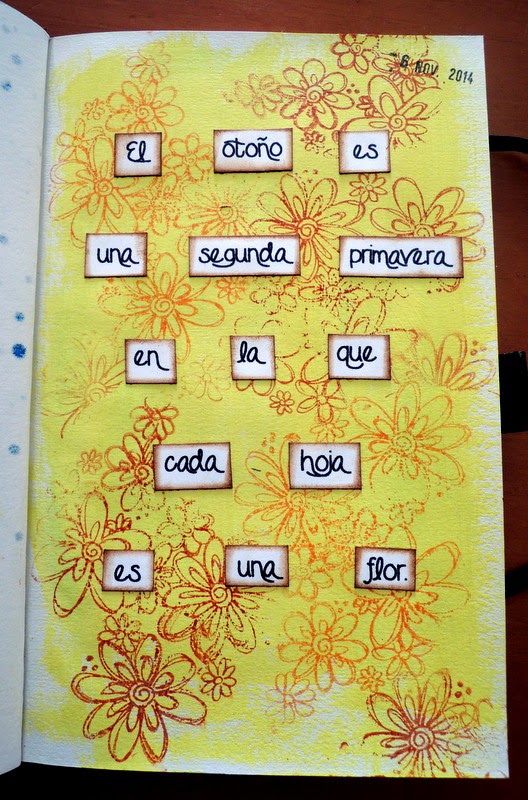 6 NOV. 2014
El otoño es
una segunda primavera
en la que
cada hoja
es una flor.